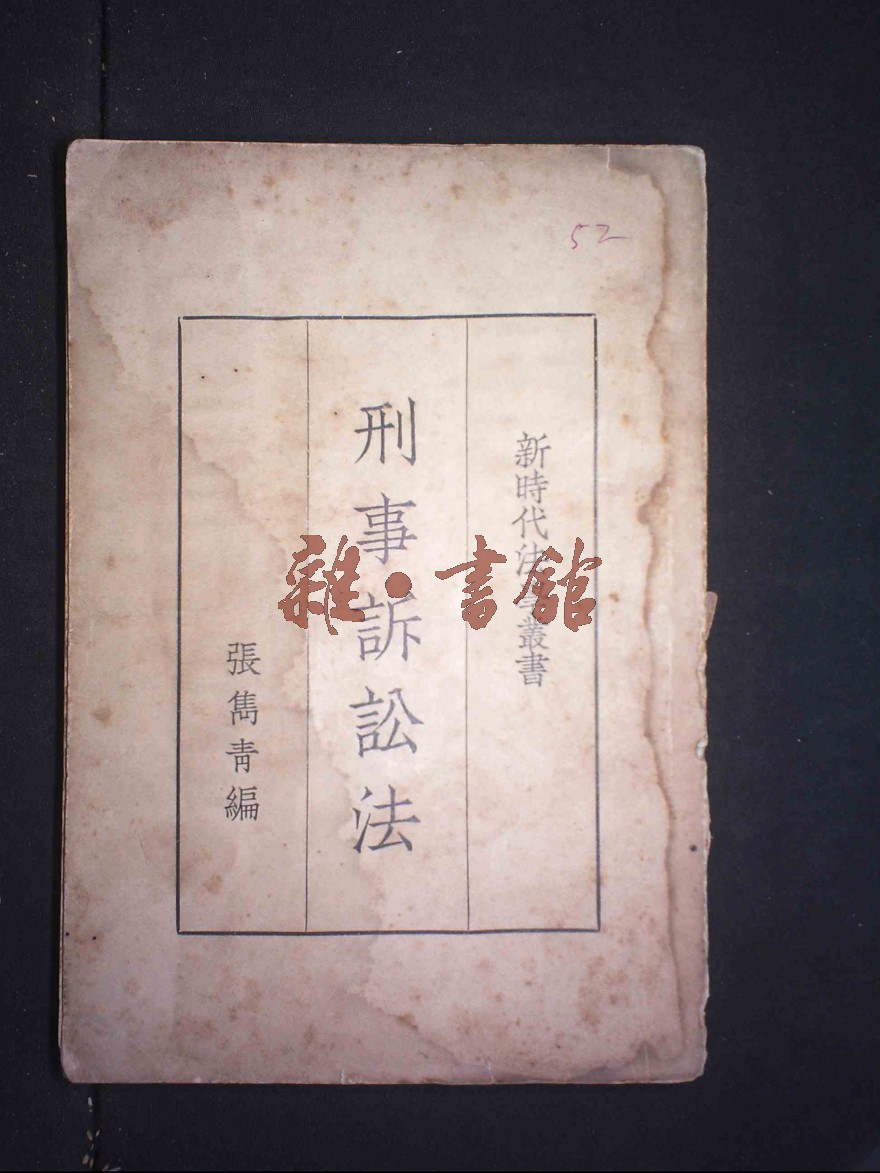 52
新時代法學叢書
刑事訴訟法
張雋青編
雜·書館